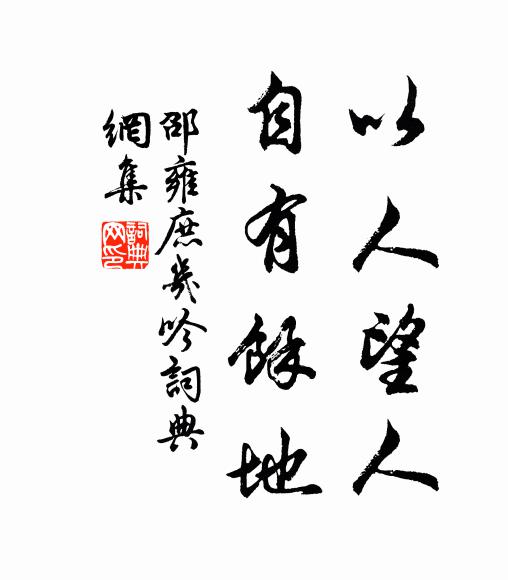 以人望人
自有餘地
邵雍庶幾吟詞典
網集
詞典
网印